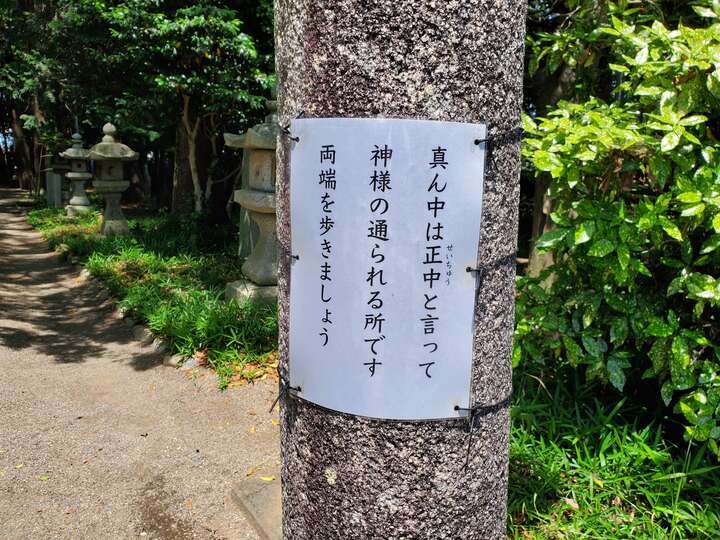 真ん中は正中と言って
せいちゅう
神様の通られる所です
両端を歩きましょう